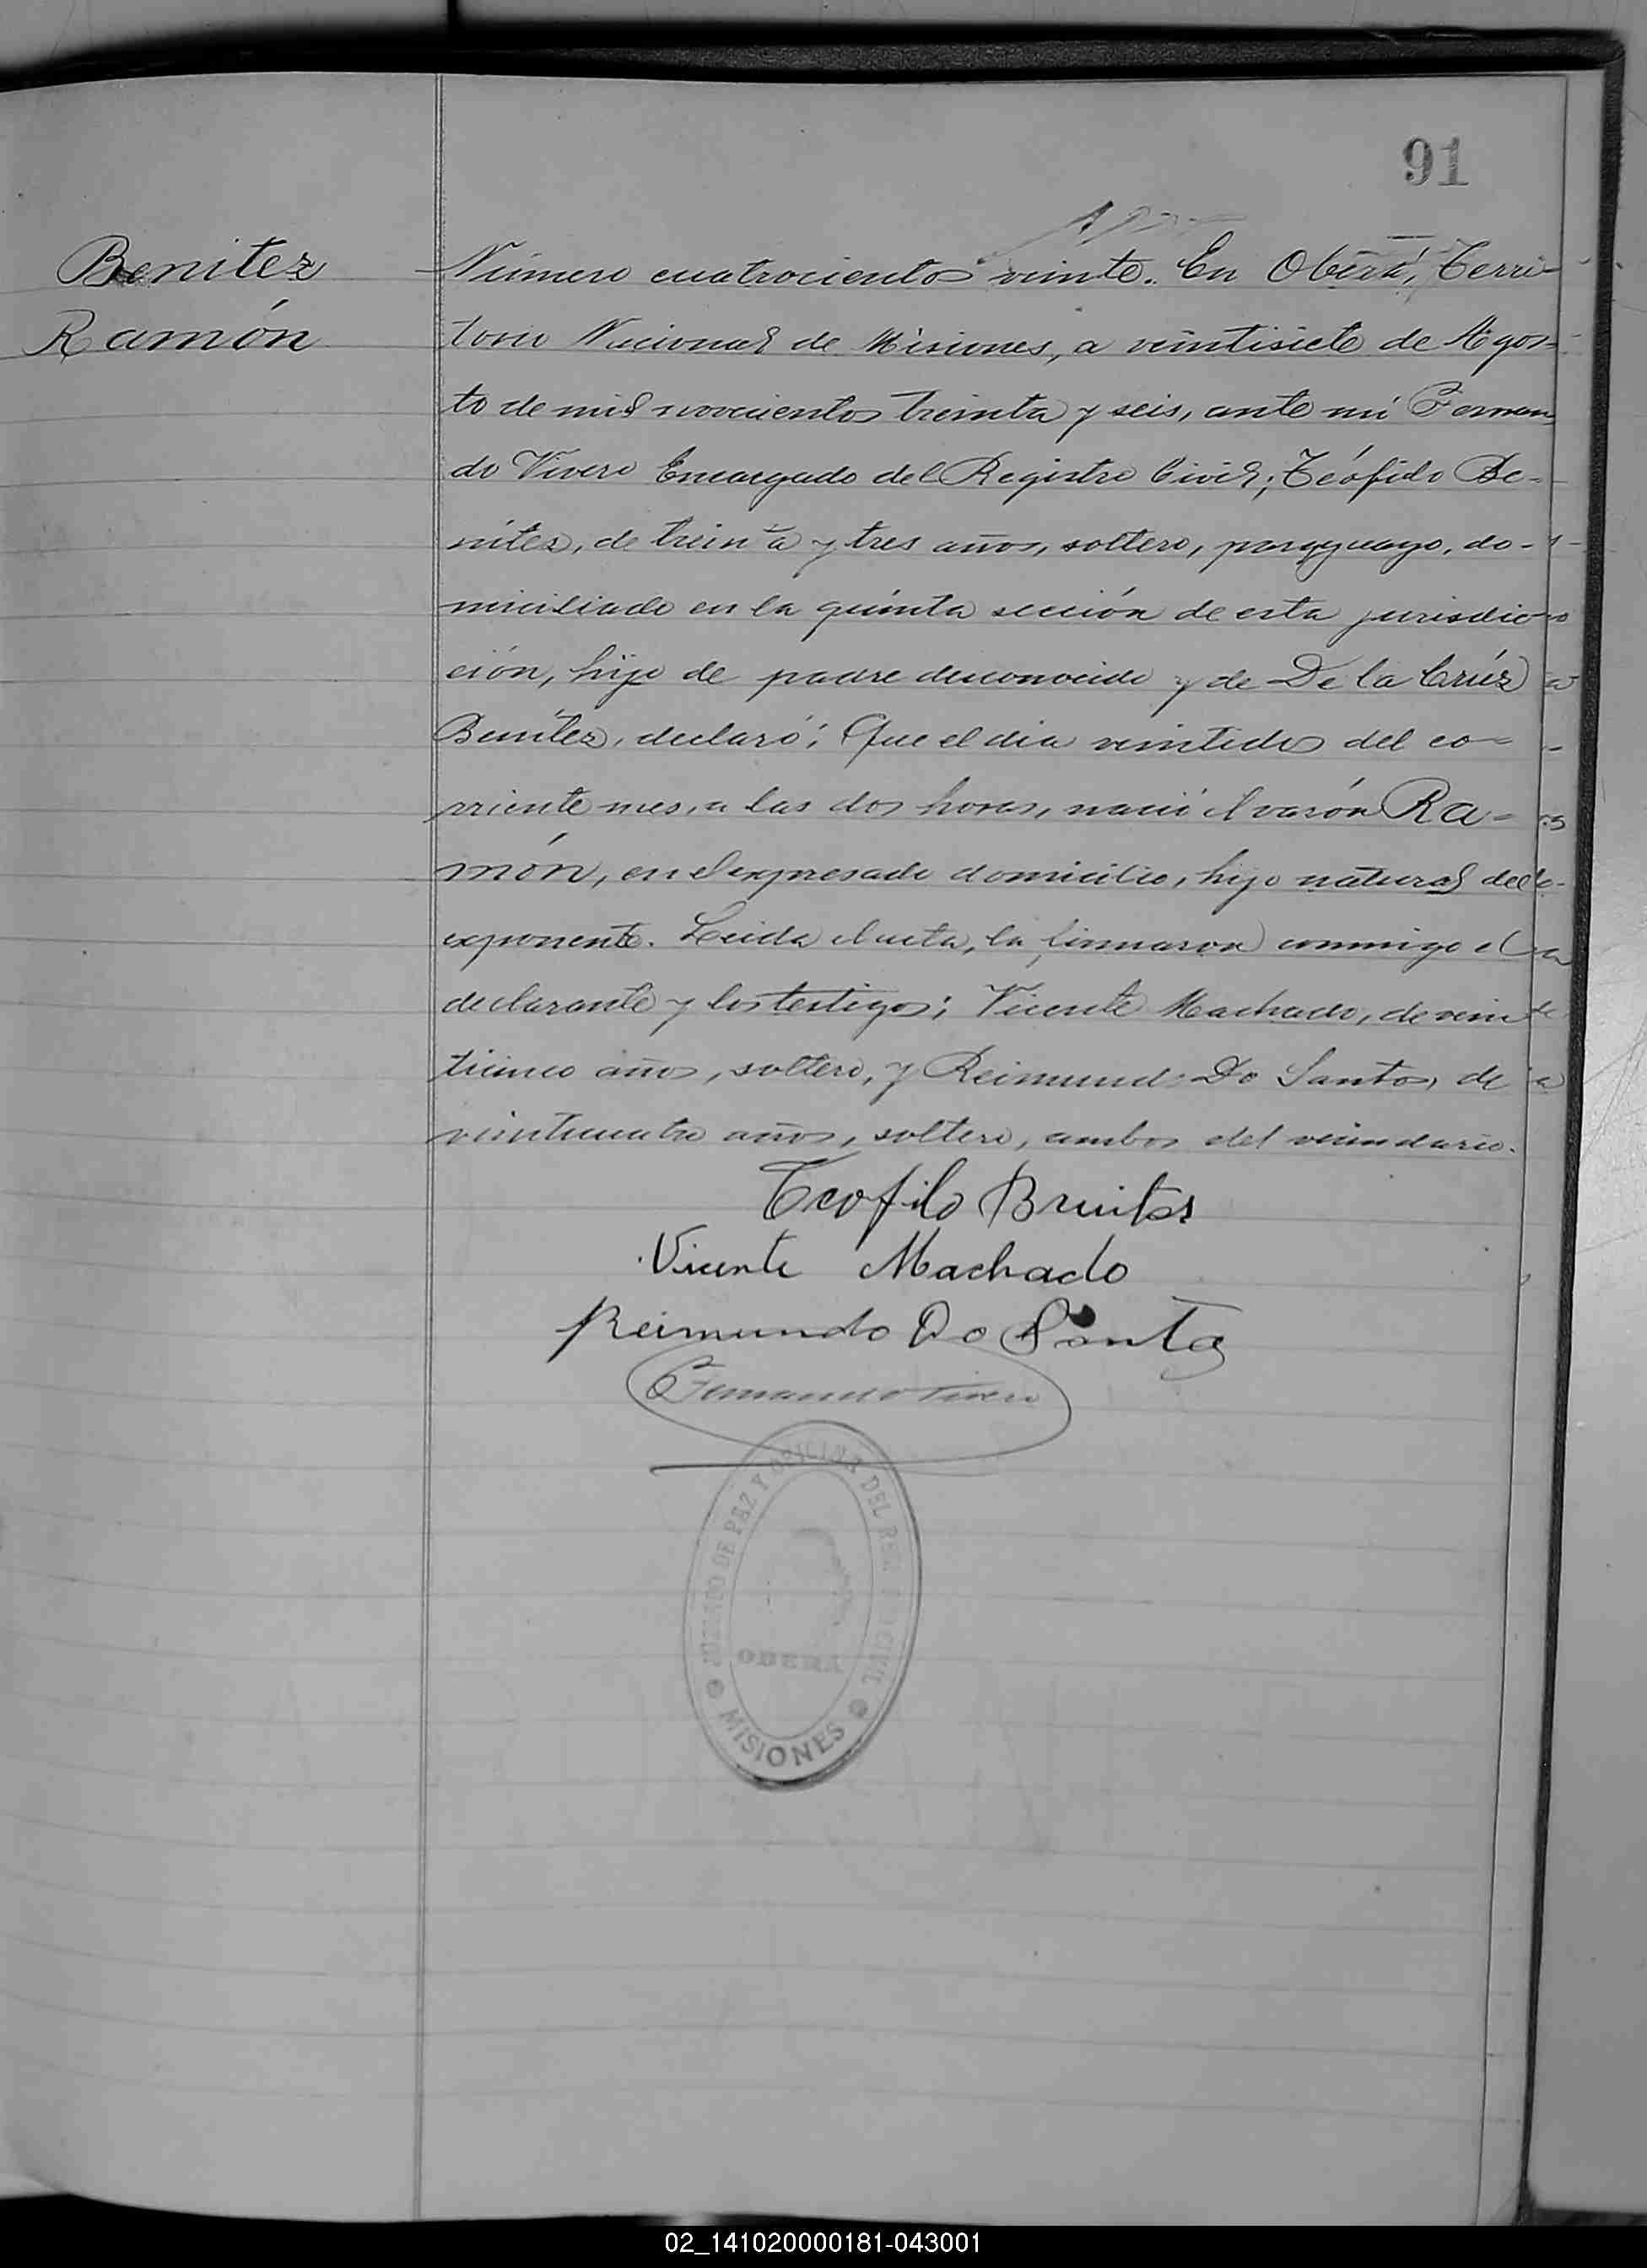 91
Benitez
Ramón
Número cuatrocientos veinte. En Oberá, Terri-
torio Nacional de Misiones, a veintisiete de Agos-
to de mil novecientos treinta y seis, ante mí Fernan-
do Vivero Encargado del Registro Civil; Teófilo Be-
nitez, de treinta y tres años, soltero, paraguayo, do-
miciliado en la quinta sección de esta jurisdic-
ción, hijo de padre desconocido y de De la Crúz
Benítez, declaró: Que el dia veintidos del co-
rriente mes, a las dos horas, nació el varón Ra-
món, en el expresado domicilio, hijo natural del
exponente. Leida el acta, la firmaron conmigo el
declarante y los testigos; Vicente Machado, de vein-
ticinco años, soltero, y Reimundo Do Santos, de
veinticuatro años, soltero, ambos del vecindario.
Teofilo Benites
Vicente Machado
Reimundo Do Santos
Fernando Vivero
JUZGADO DE PAZ Y OFICINA DEL REG. CIVIL
OBERÁ
MISIONES
02_141020000181-043001